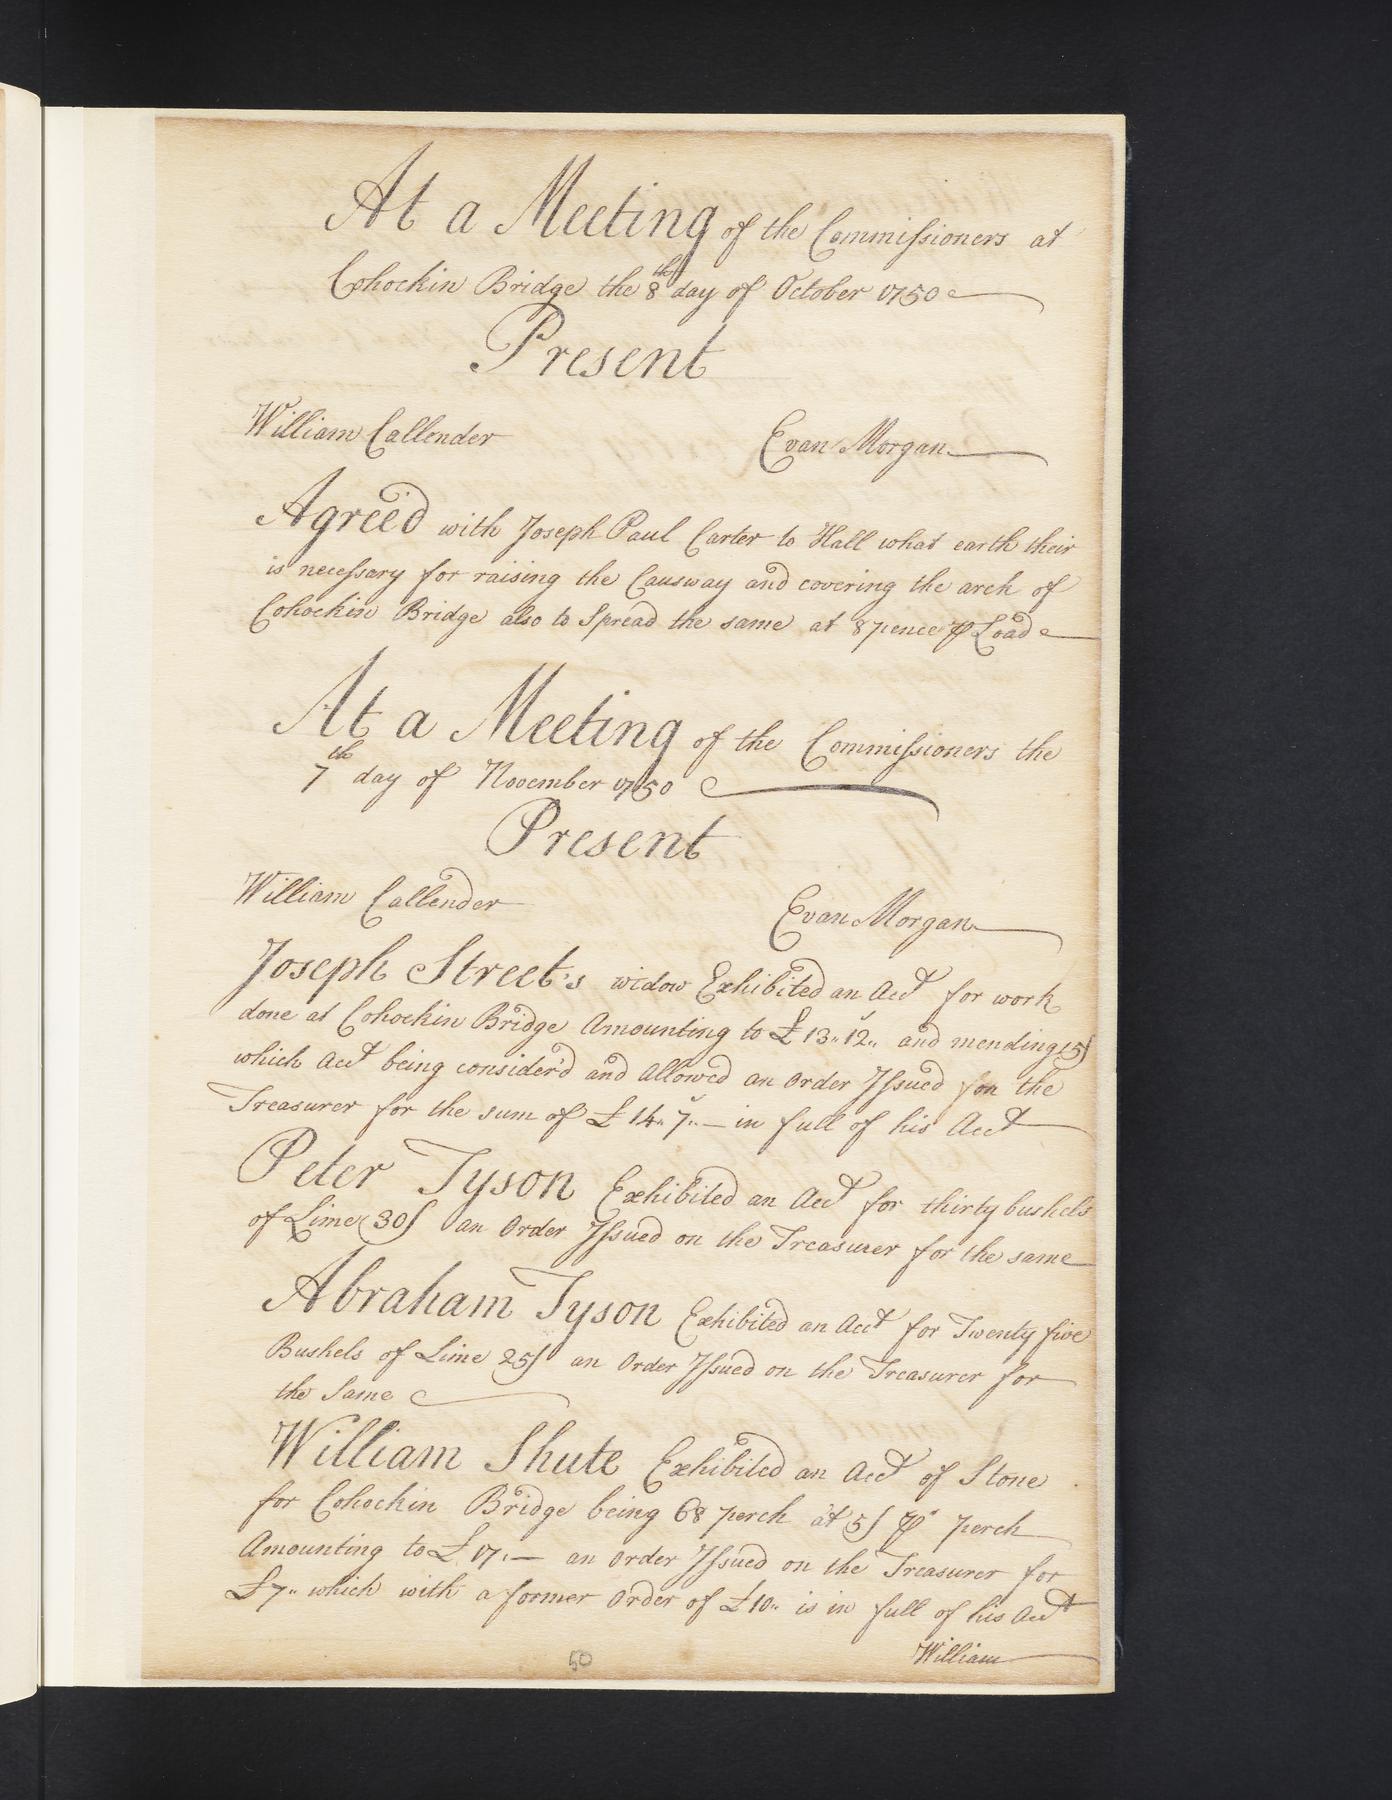 At a Meeting of the Commissioners at
Cohockin Bridge the 8th day of October 1750
Present
William Callender Evan Morgan
Agreed with Joseph Paul Carter to Hall what earth their
is necessary for raising the Causway and covering the arch of
Cohockin Bridge also to Spread the same at 8 pence ⅌ Load
At a Meeting of the Commissioners the
7th day of November 1750
Present
William Callender Evan Morgan
Joseph Street's widow Exhibited an Acct for work
done at Cohockin Bridge Amounting to £13..12.. and mending 15/
which Acct being consider'd and allowed an Order Issued on the
Treasurer for the sum of £14..7..— in full of his Acct
Peter Tyson Exhibited an Acct for thirty bushels
of Lime 30/ an Order Issued on the Treasurer for the same
Abraham Tyson Exhibited an Acct for Twenty five
Bushels of Lime 25/ an Order Issued on the Treasurer for
the Same
William Shute Exhibited an Acct of Stone
for Cohockin Bridge being 68 perch at 5/ ⅌ perch
Amounting to £17.— an order Issued on the Treasurer for
£7.. which with a former Order of £10.. is in full of his Acct
William
50